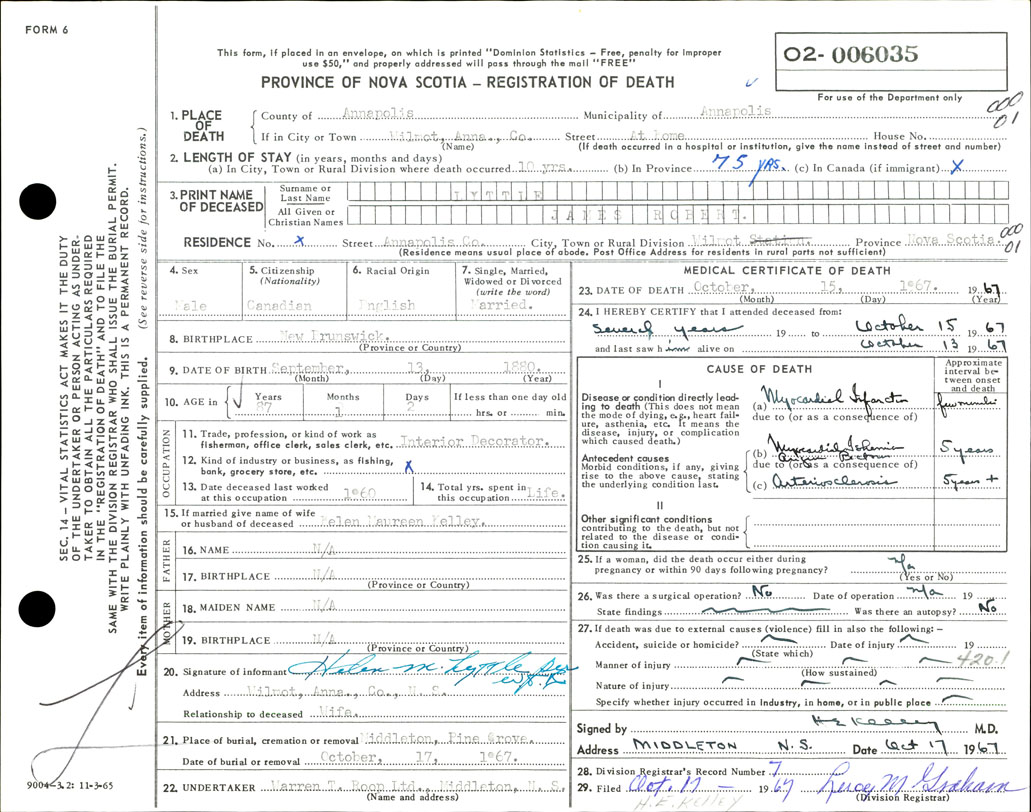 FORM 6
This form, if placed in an envelope, on which is printed "Dominion Statistics – Free, penalty for improper
use $50," and properly addressed will pass through the mail "FREE"
PROVINCE OF NOVA SCOTIA – REGISTRATION OF DEATH
02- 006035
For use of the Department only
000
01
1. PLACE OF DEATH
County of Annapolis Municipality of Annapolis
If in City or Town Wilmot, Anna., Co. Street At Home House No.
(Name) (If death occurred in a hospital or institution, give the name instead of street and number)
2. LENGTH OF STAY (in years, months and days)
(a) In City, Town or Rural Division where death occurred 10 yrs. (b) In Province 75 yrs. (c) In Canada (if immigrant) X
3. PRINT NAME OF DECEASED
Surname or Last Name LYTTLE
All Given or Christian Names JAMES ROBERT.
RESIDENCE No. X Street Annapolis Co. City, Town or Rural Division Wilmot Province Nova Scotia.
000
01
(Residence means usual place of abode. Post Office Address for residents in rural parts not sufficient)
4. Sex
Male
5. Citizenship
(Nationality)
Canadian
6. Racial Origin
English
7. Single, Married,
Widowed or Divorced
(write the word)
Married.
8. BIRTHPLACE New Brunswick.
(Province or Country)
9. DATE OF BIRTH September, 13, 1880.
(Month) (Day) (Year)
10. AGE in Years Months Days If less than one day old
87 1 2 hrs. or min.
OCCUPATION
11. Trade, profession, or kind of work as
fisherman, office clerk, sales clerk, etc. Interior Decorator.
12. Kind of industry or business, as fishing,
bank, grocery store, etc. X
13. Date deceased last worked
at this occupation 1960
14. Total yrs. spent in
this occupation Life.
15. If married give name of wife
or husband of deceased Helen Maureen Kelley.
FATHER
16. NAME N/A
17. BIRTHPLACE N/A
(Province or Country)
MOTHER
18. MAIDEN NAME N/A
19. BIRTHPLACE N/A
(Province or Country)
20. Signature of informant Helen M. Lyttle
Address Wilmot, Anna., Co., N. S.
Relationship to deceased Wife.
21. Place of burial, cremation or removal Middleton, Pine Grove.
Date of burial or removal October, 17, 1967.
22. UNDERTAKER Warren T. Roop Ltd., Middleton, N. S.
(Name and address)
MEDICAL CERTIFICATE OF DEATH
23. DATE OF DEATH October, 15, 1967. 1967
(Month) (Day) (Year)
24. I HEREBY CERTIFY that I attended deceased from:
Several years 19 to October 15 1967
and last saw him alive on October 13 1967
CAUSE OF DEATH
Approximate
interval be-
tween onset
and death
I
Disease or condition directly lead-
ing to death (This does not
mean the mode of dying, e.g., heart fail-
ure, asthenia, etc. It means the
disease, injury, or complication
which caused death.)
(a) Myocardial Infarction
due to (or as a consequence of)
Antecedent causes
Morbid conditions, if any, giving
rise to the above cause, stating
the underlying condition last.
(b) Myocardial Ischemia 5 years
Angina Pectoris
due to (or as a consequence of)
(c) Arteriosclerosis 5 years +
II
Other significant conditions
contributing to the death, but not
related to the disease or condi-
tion causing it.
25. If a woman, did the death occur either during
pregnancy or within 90 days following pregnancy? n/a
(Yes or No)
26. Was there a surgical operation? No Date of operation n/a 19
State findings Was there an autopsy? No
27. If death was due to external causes (violence) fill in also the following: –
Accident, suicide or homicide? Date of injury 19
(State which)
420.1
Manner of injury
(How sustained)
Nature of injury
Specify whether injury occurred in industry, in home, or in public place
Signed by H E Kelley M.D.
Address MIDDLETON N.S. Date Oct 17 1967
28. Division Registrar's Record Number 7
29. Filed Oct. 17 – 1967 Lucy M. Graham
(Division Registrar)
H.E. KELLEY
SEC. 14 – VITAL STATISTICS ACT MAKES IT THE DUTY
OF THE UNDERTAKER OR PERSON ACTING AS UNDER-
TAKER TO OBTAIN ALL THE PARTICULARS REQUIRED
IN THE "REGISTRATION OF DEATH" AND TO FILE THE
SAME WITH THE DIVISION REGISTRAR WHO SHALL ISSUE THE BURIAL PERMIT.
WRITE PLAINLY WITH UNFADING INK. THIS IS A PERMANENT RECORD.
Every item of information should be carefully supplied. (See reverse side for instructions.)
9004-3.2: 11-3-65